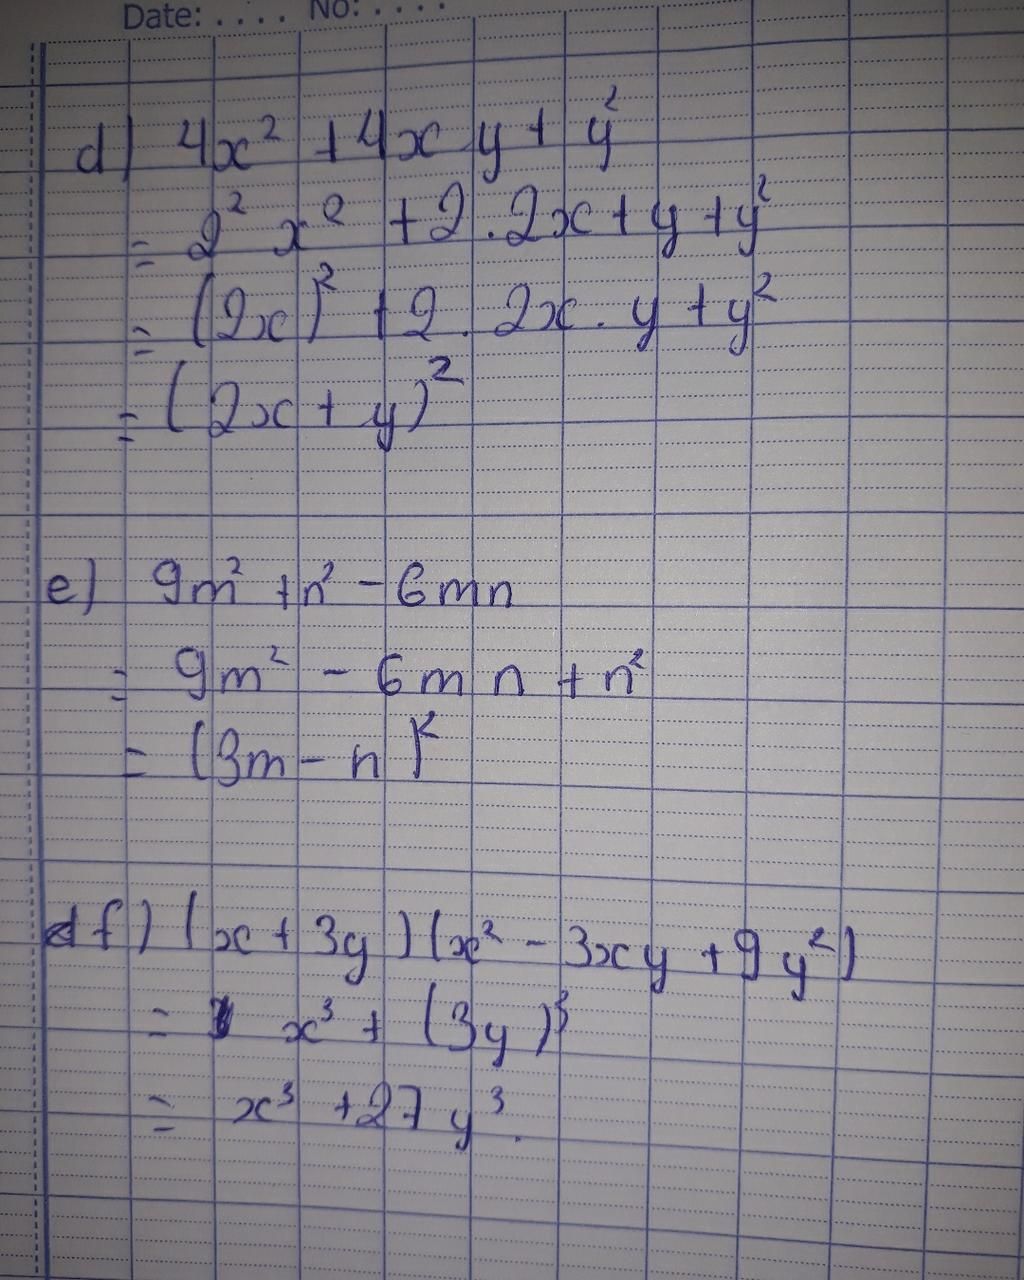 Date: .... No: ....
d) 4x² + 4xy + y²
= 2² x² + 2 . 2x + y + y²
= (2x)² + 2 . 2x . y + y²
= (2x + y)²
e) 9m² + n² - 6mn
= 9m² - 6mn + n²
= (3m - n)²
f) (x + 3y)(x² - 3xy + 9y²)
= x³ + (3y)³
= x³ + 27y³.